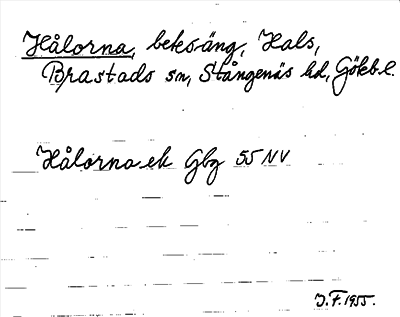 Hålorna, betesäng, Hals,
Brastads sn, Stångenäs hd, Götebl.
Hålorna ek Gbg 55 NV
J.F. 1955.